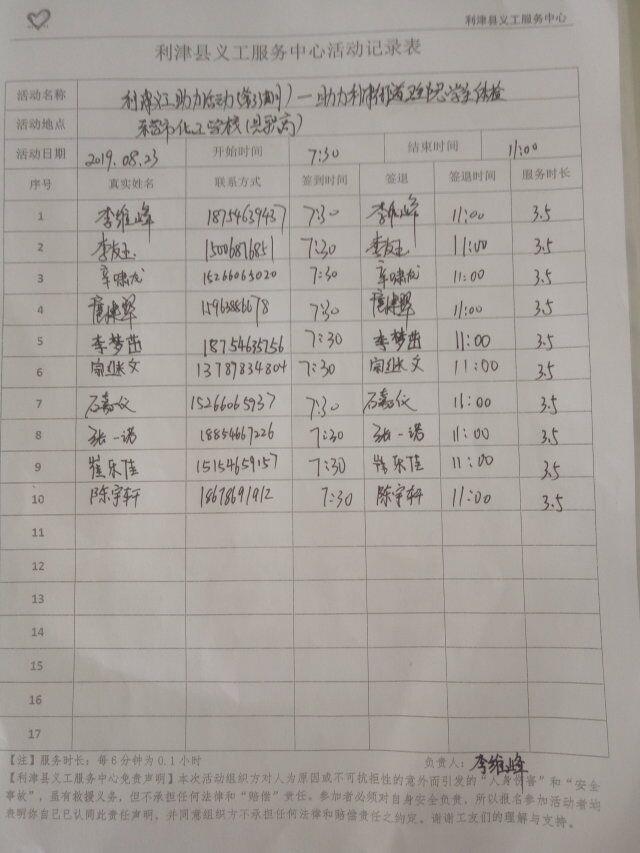 利津县义工服务中心
利津县义工服务中心活动记录表
活动名称 利津义工助力活动(第33期)—助力利津街道 学生体检
活动地点 东营市化工学校(县职高)
活动日期 2019.08.23 开始时间 7:30 结束时间 11:00
序号 真实姓名 联系方式 签到时间 签退 签退时间 服务时长
1 李维峰 18754639437 7:30 李维峰 11:00 3.5
2 李友玉 15006871651 7:30 李友玉 11:00 3.5
3 辛啸龙 15266065020 7:30 辛啸龙 11:00 3.5
4 15963886678 7:30 11:00 3.5
5 李梦茁 18754635756 7:30 李梦茁 11:00 3.5
6 13789834804 7:30 11:00 3.5
7 石嘉仪 15266065937 7:30 石嘉仪 11:00 3.5
8 张一诺 18854667226 7:30 张一诺 11:00 3.5
9 崔乐佳 15154659157 7:30 崔乐佳 11:00 3.5
10 陈宇轩 18678691912 7:30 陈宇轩 11:00 3.5
11
12
13
14
15
16
17
【注】服务时长：每6分钟为0.1小时 负责人：李维峰
【利津县义工服务中心免责声明】本次活动组织方对人为原因或不可抗拒性的意外而引发的“人身伤害”和“安全
事故”，虽有救援义务，但不承担任何法律和“赔偿”责任。参加者必须对自身安全负责，所以报名参加活动者地
表明你自己已认同此责任声明，并同意组织方不承担任何法律和赔偿责任之约定。谢谢工友们的理解与支持。